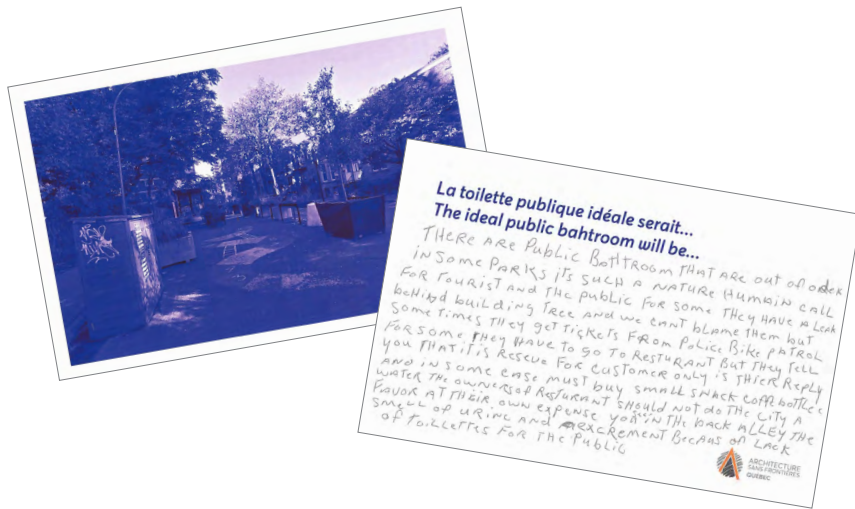 La toilette publique idéale serait...
The ideal public bahtroom will be...
THERE ARE Public BoThTROOM THAT ARE out of order
in Some PARKS iTS SUCH A NATURE HUMAiN CALL
FOR TOURIST AND THE public FOR Some THEY HAVE A LEAK
beHind building TREE AND WE CANT bLAME THEM buT
Some Times THEY geT TiCKETS FROM Police Bike PATROL
FOR Some THEY HAVE TO GO TO RESTURANT BUT THEY TELL
YOU THAT iT iS RESEUE FOR CUSTOMER ONLY is THIER REPLY
AND iN Some CASE MUST buy SMALL SNACK COFFE boTTLE
WATER THE OWNERS OF RESTURANT SHOULD NOT do THE CiTY A
FAVOR AT THEIR OWN EXPENSE YOU iN THE bACK ALLEY THE
SMELL OF URiNE AND EXCREMENT BECAUS OF LACK
OF TOILLETTES FOR THE Public
ARCHITECTURE
SANS FRONTIÈRES
QUÉBEC